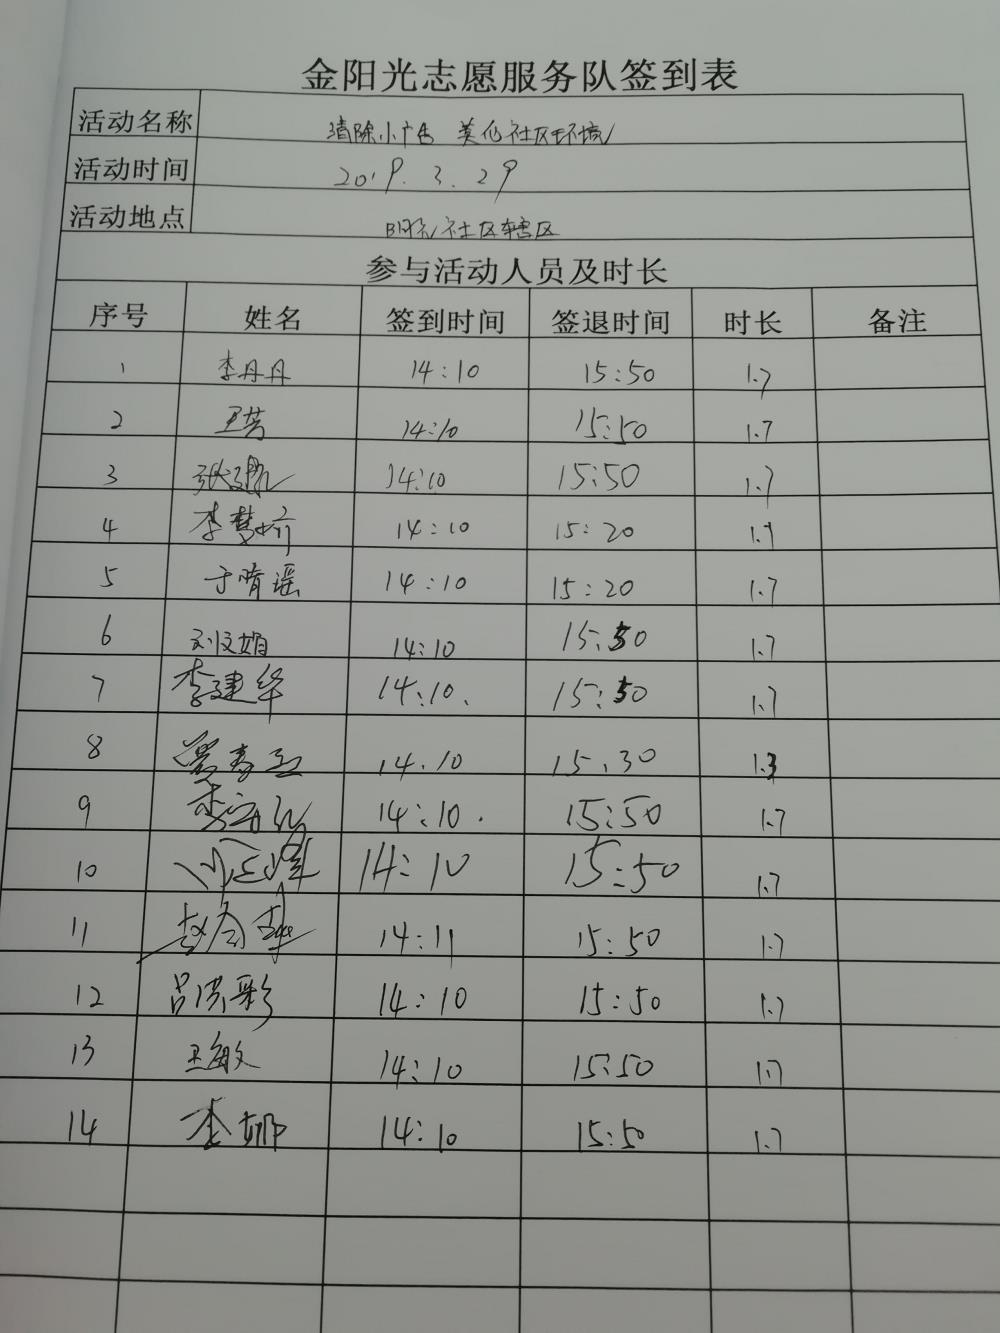 金阳光志愿服务队签到表
活动名称 清除小广告 美化社区环境
活动时间 2019.3.29
活动地点 社区辖区
参与活动人员及时长
序号 姓名 签到时间 签退时间 时长 备注
1 李丹丹 14:10 15:50 1.7
2 王芳 14:10 15:50 1.7
3 14:10 15:50 1.7
4 李梦 14:10 15:20 1.7
5 于晴谣 14:10 15:20 1.7
6 刘文娟 14:10 15:50 1.7
7 李建华 14:10. 15:50 1.7
8 14.10 15.30 1.3
9 李 14:10. 15:50 1.7
10 14:10 15:50 1.7
11 赵 14:11 15:50 1.7
12 吕洪彩 14:10 15:50 1.7
13 王敏 14:10 15:50 1.7
14 李娜 14:10 15:50 1.7